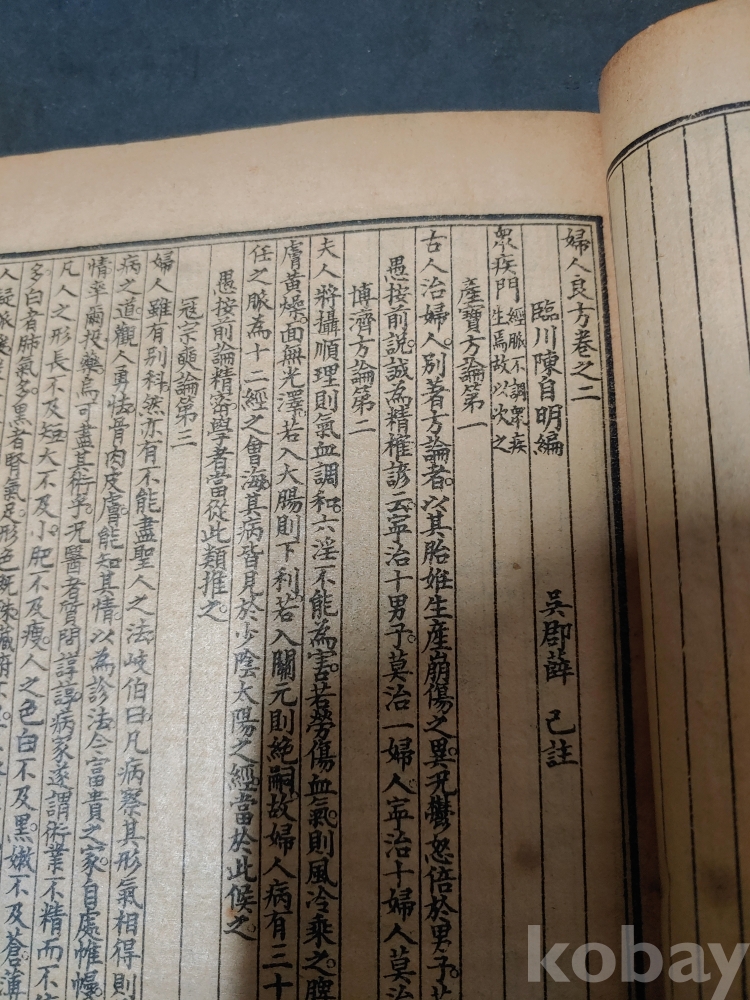 婦人良方卷之二
臨川陳自明編 吳郡薛 己註
衆疾門 經脈不調衆疾
生焉故以次之
產寶方論第一
古人治婦人別著方論者以其胎姙生產崩傷之異况鬱怒倍於男子
愚按前說誠為精㩲諺云寕治十男子莫治一婦人寕治十婦人莫治
博濟方論第二
夫人將攝順理則氣血調和六淫不能為害若勞傷血氣則風冷乘之脾
膚黃燥面無光澤若入大腸則下利若入關元則絶嗣故婦人病有三十
任之脈為十二經之會海其病皆見於少陰太陽之經當於此候之
愚按前論精密學者當從此類推之
冦宗奭論第三
婦人雖有別科然亦有不能盡聖人之法岐伯曰凡病察其形氣相得則
病之道觀人勇怯骨肉皮膚能知其情以為診法今富貴之家自處帷幔
情率爾投藥烏可盡其術乎况醫者質問諄諄病家遂謂術業不精而不
凡人之形長不及短大不及小肥不及瘦人之色白不及黑嫩不及蒼薄
多白者肺氣多黑者腎氣足形色既殊藏府
人
kobay